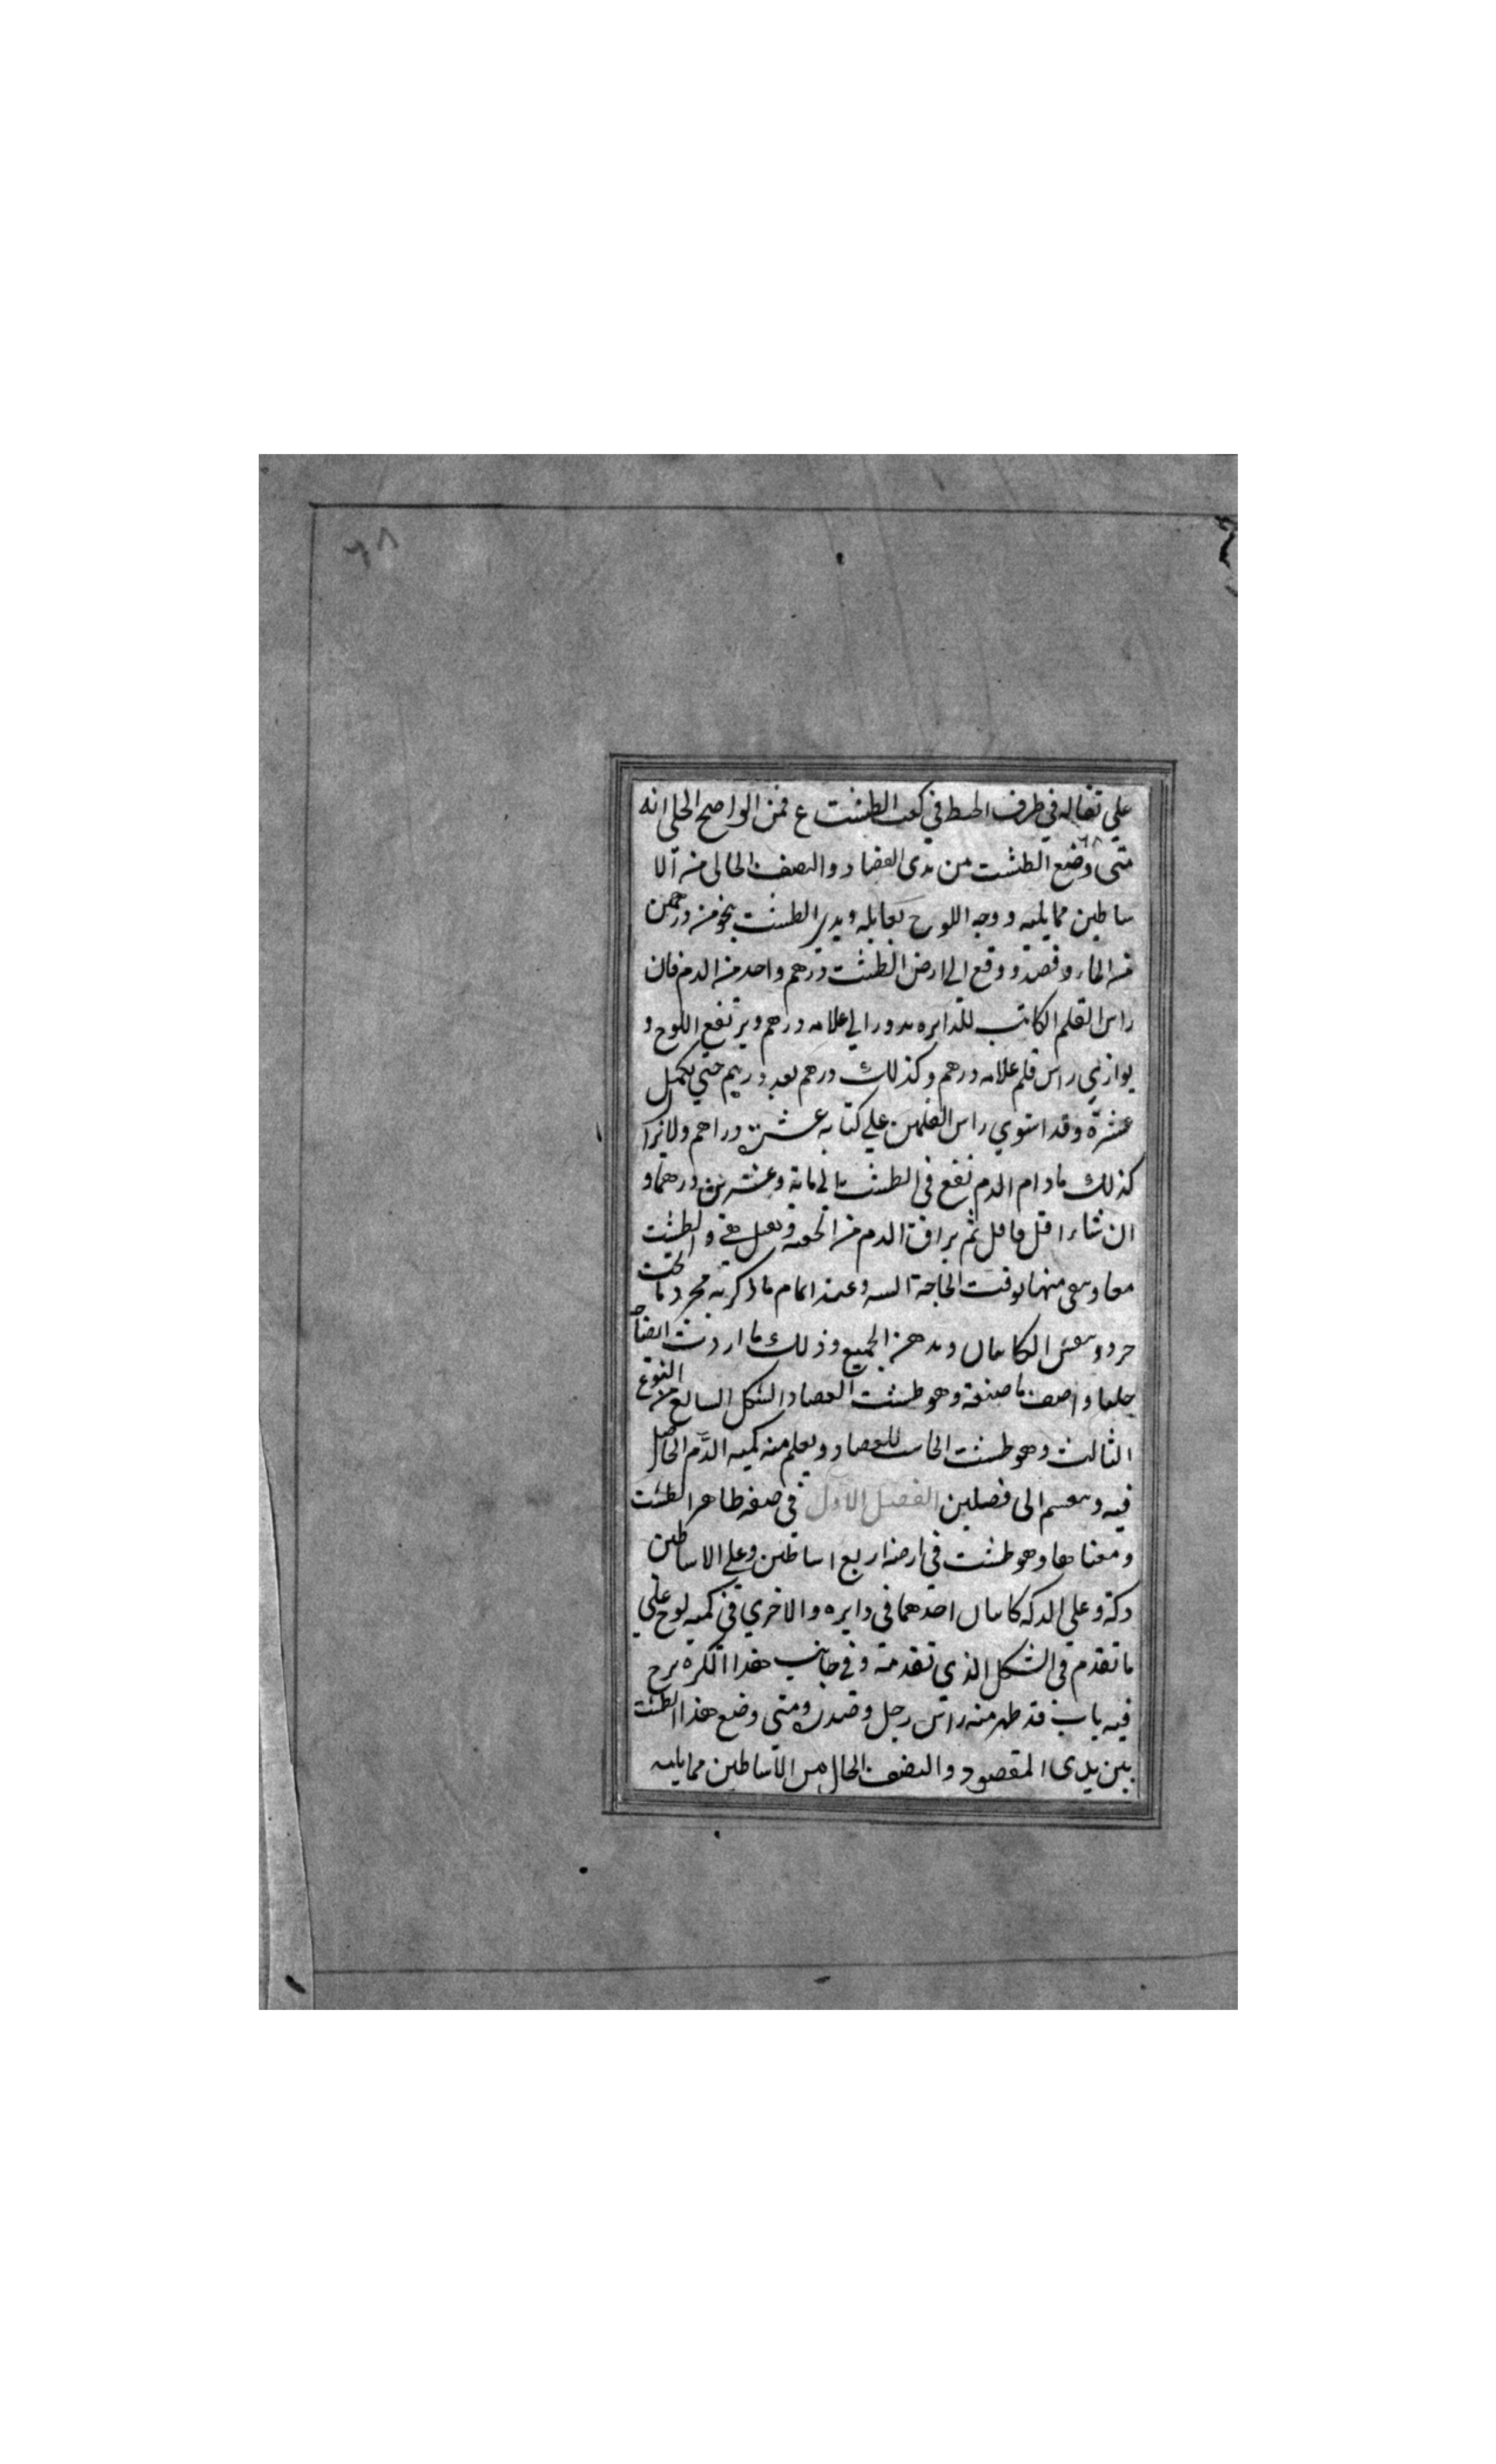 ٦٨
علي ثقاله في طرف الخيط في كعب الطشت ع فمن الواضح الجلي انه
متى وضع الطشت من يدي الفصاد والنصف الخالي من الا
ساطين مما يليه ووجه اللوح يقابله ويدير الطشت بنحو من درهمين
من الماء وفصد ووقع الي ارض الطشت درهم واحد من الدم فان
راس القلم الكاتب للدايره يدور الي علامه درهم ويرتفع اللوح و
يوازي راس قلم علامه درهم وكذلك درهم بعد درهم حتي يكمل
عشرة وقد استوي راس القلمين علي كتابه عشرة دراهم ولا يزا
كذلك ما دام الدم يقع في الطشت الي ماية وعشرين درهما و
ان شاء اقل فاقل ثم يراق الدم من و والطشت
معا منها لوقت الحاجة اليه وعند اتمام ما ذكرته مجرد ما تحت
الكاتبان الجميع وذلك ما اردت ايضا
واصف ما صنعته وهو طشت الفصاد الشكل السابع من النوع
الثالث وهو طشت الحاسب للفصاد ويعلم منه كميه الدم الحاصل
فيه وينقسم الى فصلين الفصل الاول في صفه ظاهر الطشت
ومعناها وهو طشت في ارضه اربع اساطين وعلي الاساطين
دكة وعلي الدكه كاتبان احدهما في دايره والاخري في كميه لوح علي
ما تقدم في الشكل الذي تقدمته وفي جانب هذا الكره برج
فيه باب قد ظهر منه راس رجل وصدره ومتي وضع هذا الطشت
بين يدي المقصود والنصف الخال من الاساطين مما يليه